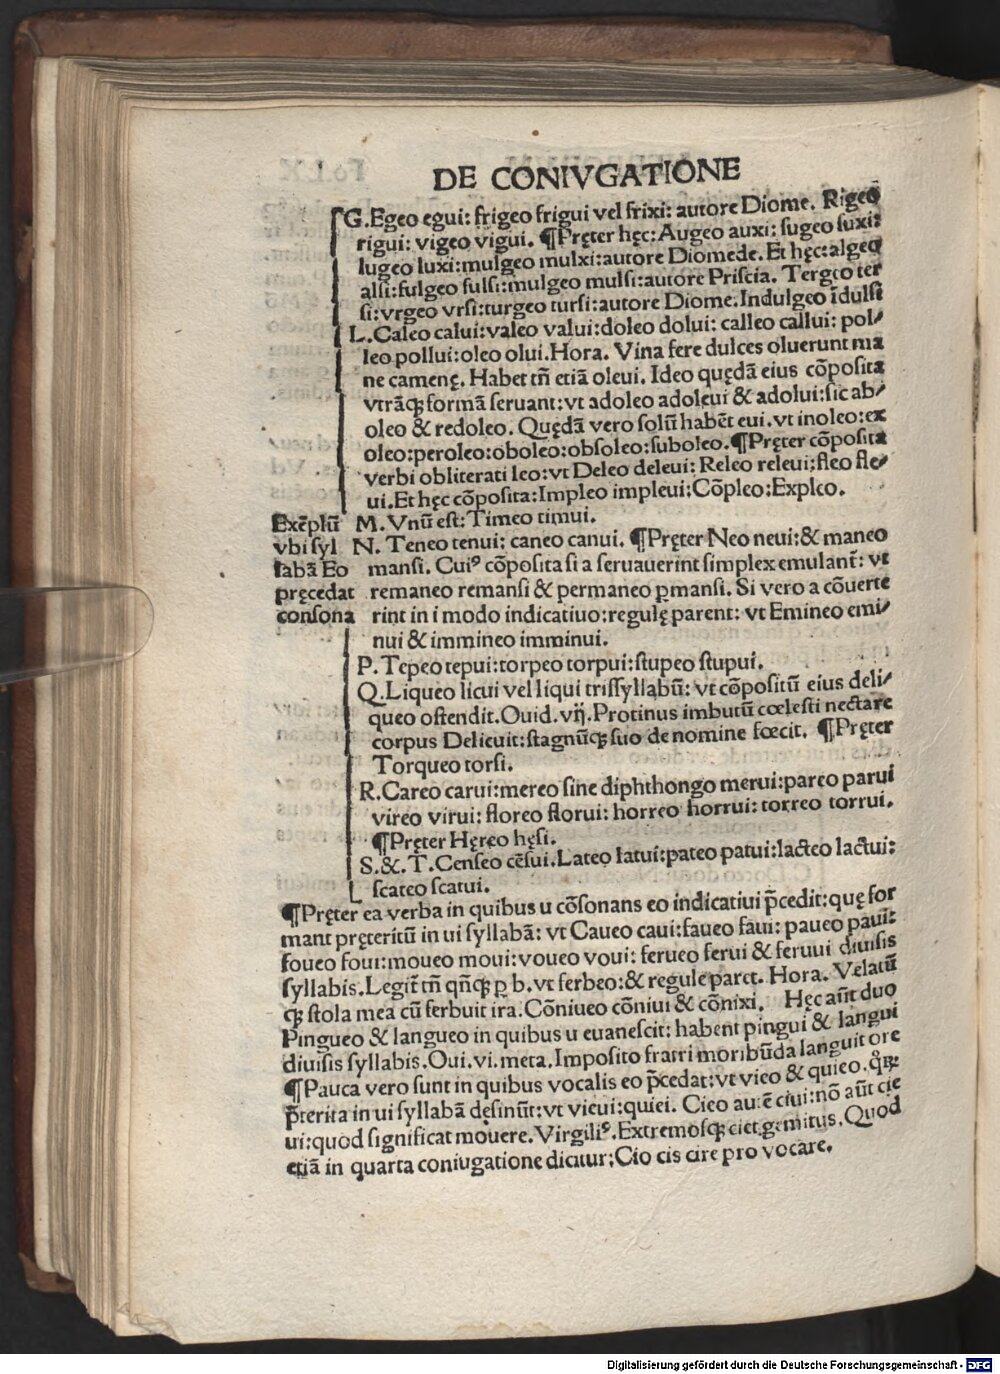 DE CONIVGATIONE
G.Egeo egui: frigeo frigui vel frixi: autore Diome. Rigeo
rigui: vigeo vigui. ¶Pręter hęc: Augeo auxi: sugeo suxi:
lugeo luxi:mulgeo mulxi:autore Diomede. Et hęc:algeo
alsi:fulgeo fulsi:mulgeo mulsi:autore Priscia. Tergeo ter
si:vrgeo vrsi:turgeo tursi:autore Diome.Indulgeo īdulsi
L.Caleo calui:valeo valui:doleo dolui: calleo callui: pol⸗
leo pollui:oleo olui.Hora. Vina fere dulces oluerunt ma
ne camenę. Habet tñ etiā oleui. Ideo quędā eius cōposita
vtrāqꝫ formā seruant:vt adoleo adoleui & adolui:sic ab⸗
oleo & redoleo. Quędā vero solū habēt eui.vt inoleo:ex
oleo:peroleo:oboleo:obsoleo:suboleo.¶Pręter cōposita
verbi obliterati leo:vt Deleo deleui: Releo releui:fleo fle⸗
ui.Et hęc cōposita:Impleo impleui:Cōpleo:Expleo.
Exēplū
vbi syl
labā Eo
pręcedat
consona
M.Vnū est:Timeo timui.
N. Teneo tenui: caneo canui. ¶Pręter Neo neui:& maneo
mansi. Cuiꝰ cōposita si a seruauerint simplex emulant᷑: vt
remaneo remansi & permaneo ꝑmansi. Si vero a cōuerte
rint in i modo indicatiuo:regulę parent: vt Emineo emi⸗
nui & immineo imminui.
P.Tepeo tepui:torpeo torpui:stupeo stupui.
Q.Liqueo licui vel liqui trissyllabū: vt cōpositū eius deli⸗
queo ostendit.Ouid.vij.Protinus imbutū cœlesti nectare
corpus Delicuit:stagnūqꝫ suo de nomine fœcit. ¶Pręter
Torqueo torsi.
R.Careo carui:mereo sine diphthongo merui:pareo parui
vireo virui: floreo florui: horreo horrui: torreo torrui.
¶Pręter Hęreo hęsi.
S.&. T.Censeo cēsui.Lateo latui:pateo patui:lacteo lactui:
scateo scatui.
¶Pręter ea verba in quibus u cōsonans eo indicatiui p̄cedit:quę for
mant pręteritū in ui syllabā: vt Caueo caui:faueo faui: paueo paui:
foueo foui:moueo moui:voueo voui: ferueo ferui & feruui diuisis
syllabis.Legit᷑ tñ qñqꝫ ꝑ b.vt ferbeo:& regule paret. Hora. Velatū
qꝫ stola mea cū ferbuit ira.Cōniueo cōniui & cōnixi. Hęc aūt duo
Pingueo & langueo in quibus u euanescit: habent pingui & langui
diuisis syllabis.Oui.vi.meta.Imposito fratri moribūda languit ore
¶Pauca vero sunt in quibus vocalis eo p̄cedat:vt vieo & quieo.qͦꝝ
p̄terita in ui syllabā desinūt:vt vieui:quiei. Cieo aut̄ ciui:nō aūt cie
ui:quod significat mouere.Virgiliꝰ.Extremosqꝫ ciet gemitus.Quod
etiā in quarta coniugatione dicitur:Cio cis cire pro vocare.
Digitalisierung gefördert durch die Deutsche Forschungsgemeinschaft - DFG